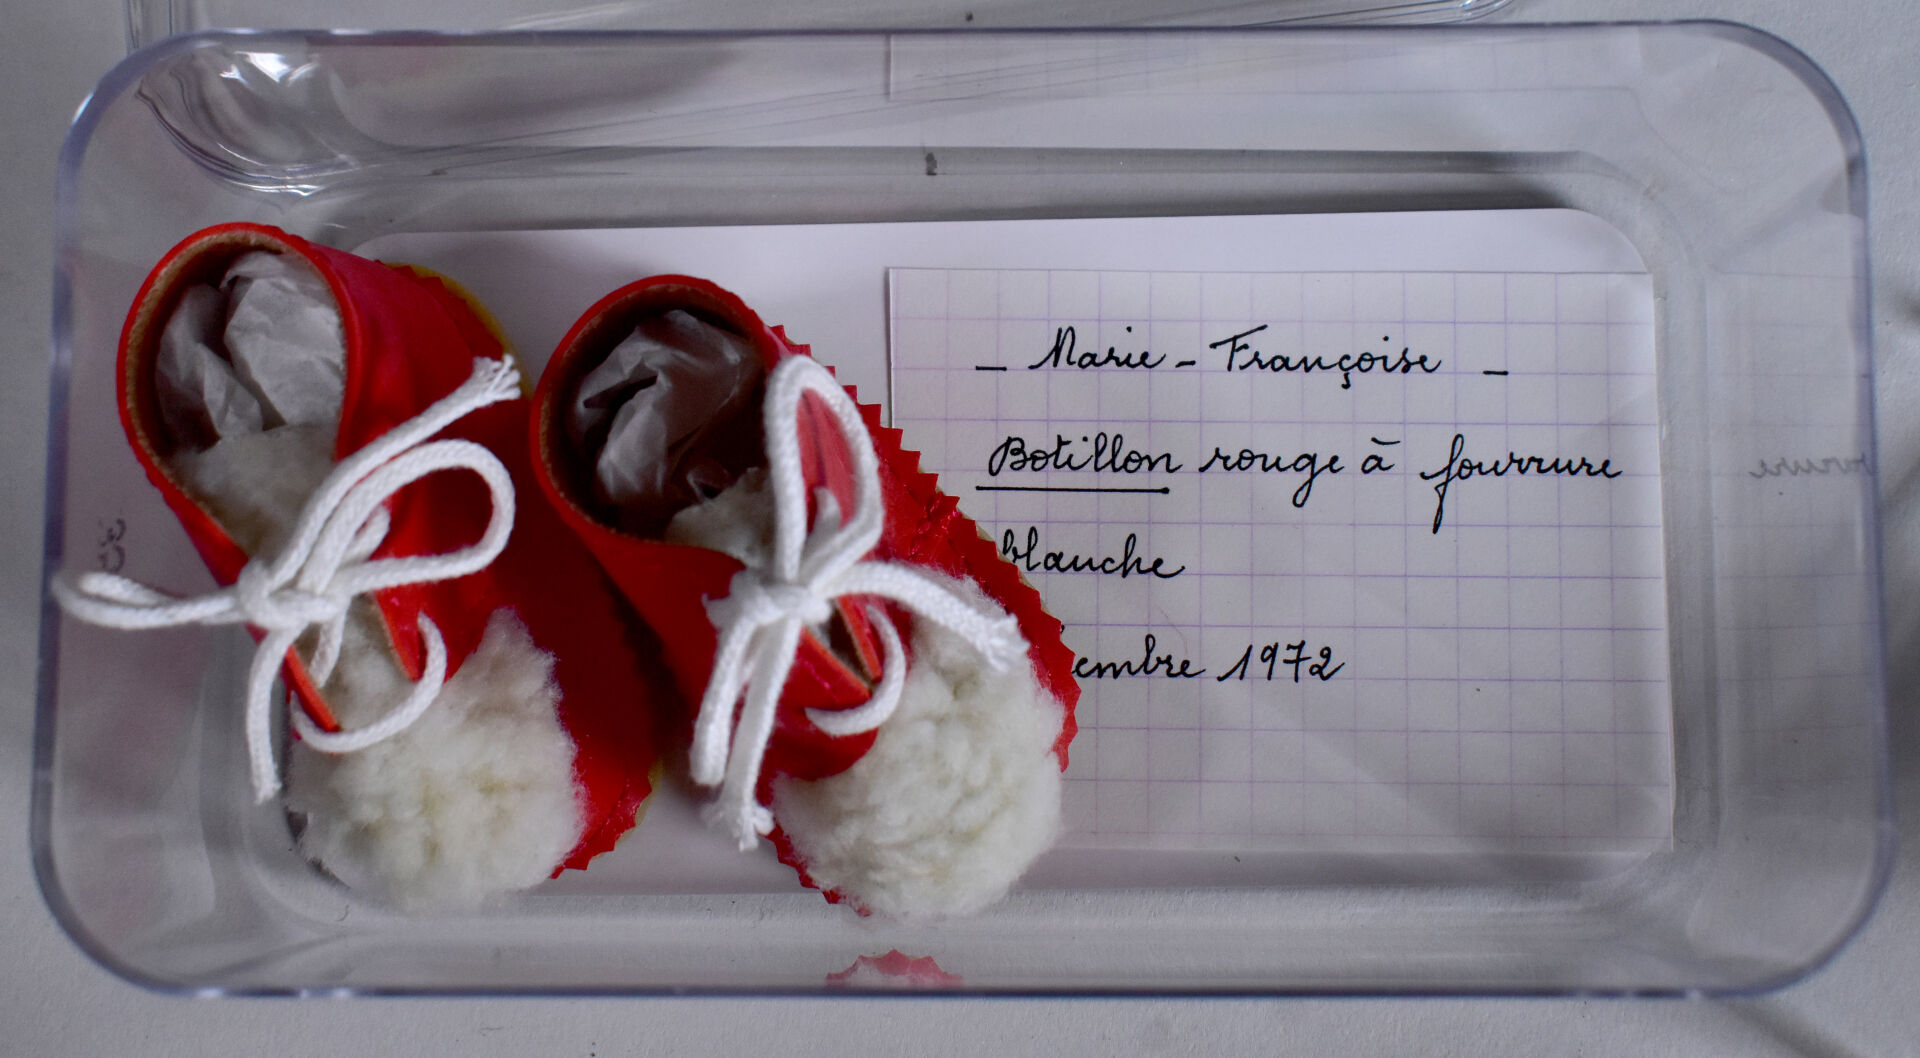 _ Marie - Françoise _
Botillon rouge à fourrure
blanche
embre 1972